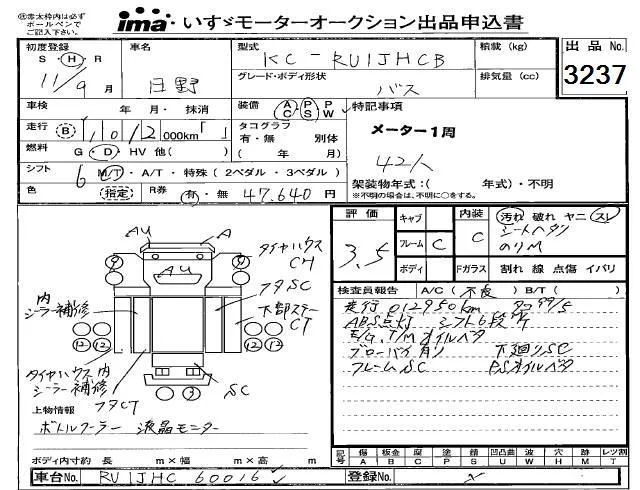 ㊟黒太枠内は必ず
ボールペンで
ご記入下さい。
ima いすゞモーターオークション出品申込書
初度登録
S・H・R
11/9月
車名
日野
型式
KC-RU1JHCB
積載(kg)
出品No.
3237
グレード・ボディ形状
バス
排気量(cc)
車検 年 月・抹消
装備 A C P S P W
特記事項
メーター1周
走行 B 1012 000km「 」
タコグラフ
有・無 別体
( 年 月)
42人
燃料 G・D・HV 他( )
シフト 6 M/T・A/T・特殊(2ペダル・3ペダル)
架装物年式:( 年式)・不明
※不明の場合は、不明に○をする。
色 (指定) R券 有・無 47,640円
評価
3.5
キャブ
フレーム C
ボディ
内装
C
汚れ 破れ ヤニ スレ
シートヘタリ
のりM
Fガラス 割れ 線 点傷 イバリ
検査員報告 A/C(不良) B/T( )
走行012950km タコ99/5
ABS点灯 シフト6段
E/G,T/Mオイルベタ
ブローバイ有リ 下廻りSC
フレームSC PSオイルベタ
AU
A
タイヤハウス
CH
AU
フタSC
下部ステー
CT
内
シーラー補修
タイヤハウス内
シーラー補修
フタCT
SC
9
9
12
12
12
12
3
上物情報
ボトルクーラー 液晶モニター
ボディ内寸約 長 m×幅 m×高 m
記号 傷A 板金B 腐C 塗P 錆S 凹凸曲U 波W 穴H 跡M レツ割T
車台No. RU1JHC 60016
登録No.